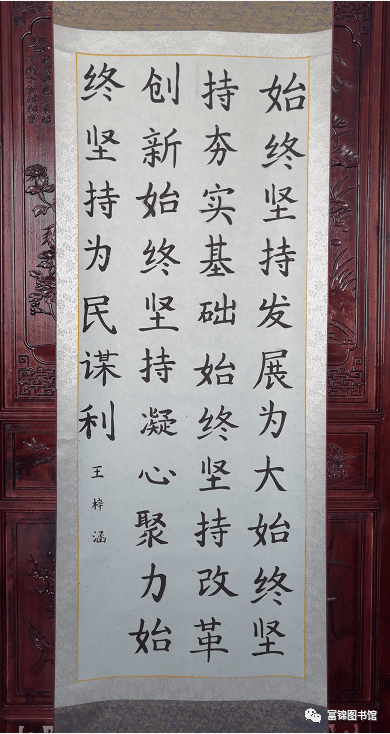 始终坚持发展为大始终坚
持夯实基础始终坚持改革
创新始终坚持凝心聚力始
终坚持为民谋利
王梓涵
富锦图书馆